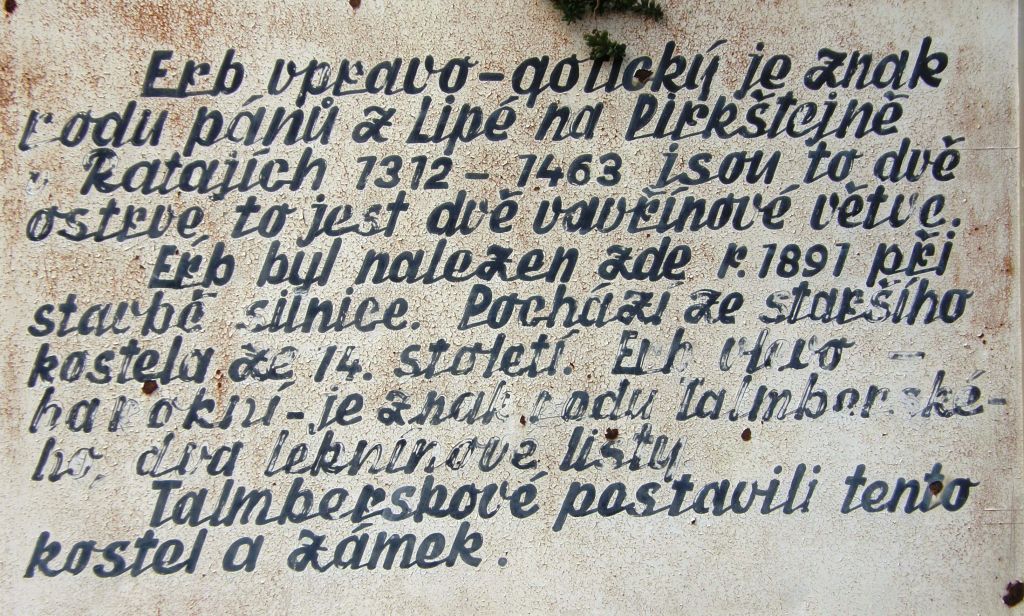 Erb vpravo - gotický je znak
rodu pánů z Lipé na Pirkštejně
v Ratajích 1312 - 1463 jsou to dvě
ostrve to jest dvě vavřínové větve.
Erb byl nalezen zde r. 1897 při
stavbě silnice. Pochází ze staršího
kostela ze 14. století. Erb vlevo -
barokní - je znak rodu Talmberské-
ho, dva leknínové listy
Talmberskové postavili tento
kostel a zámek.